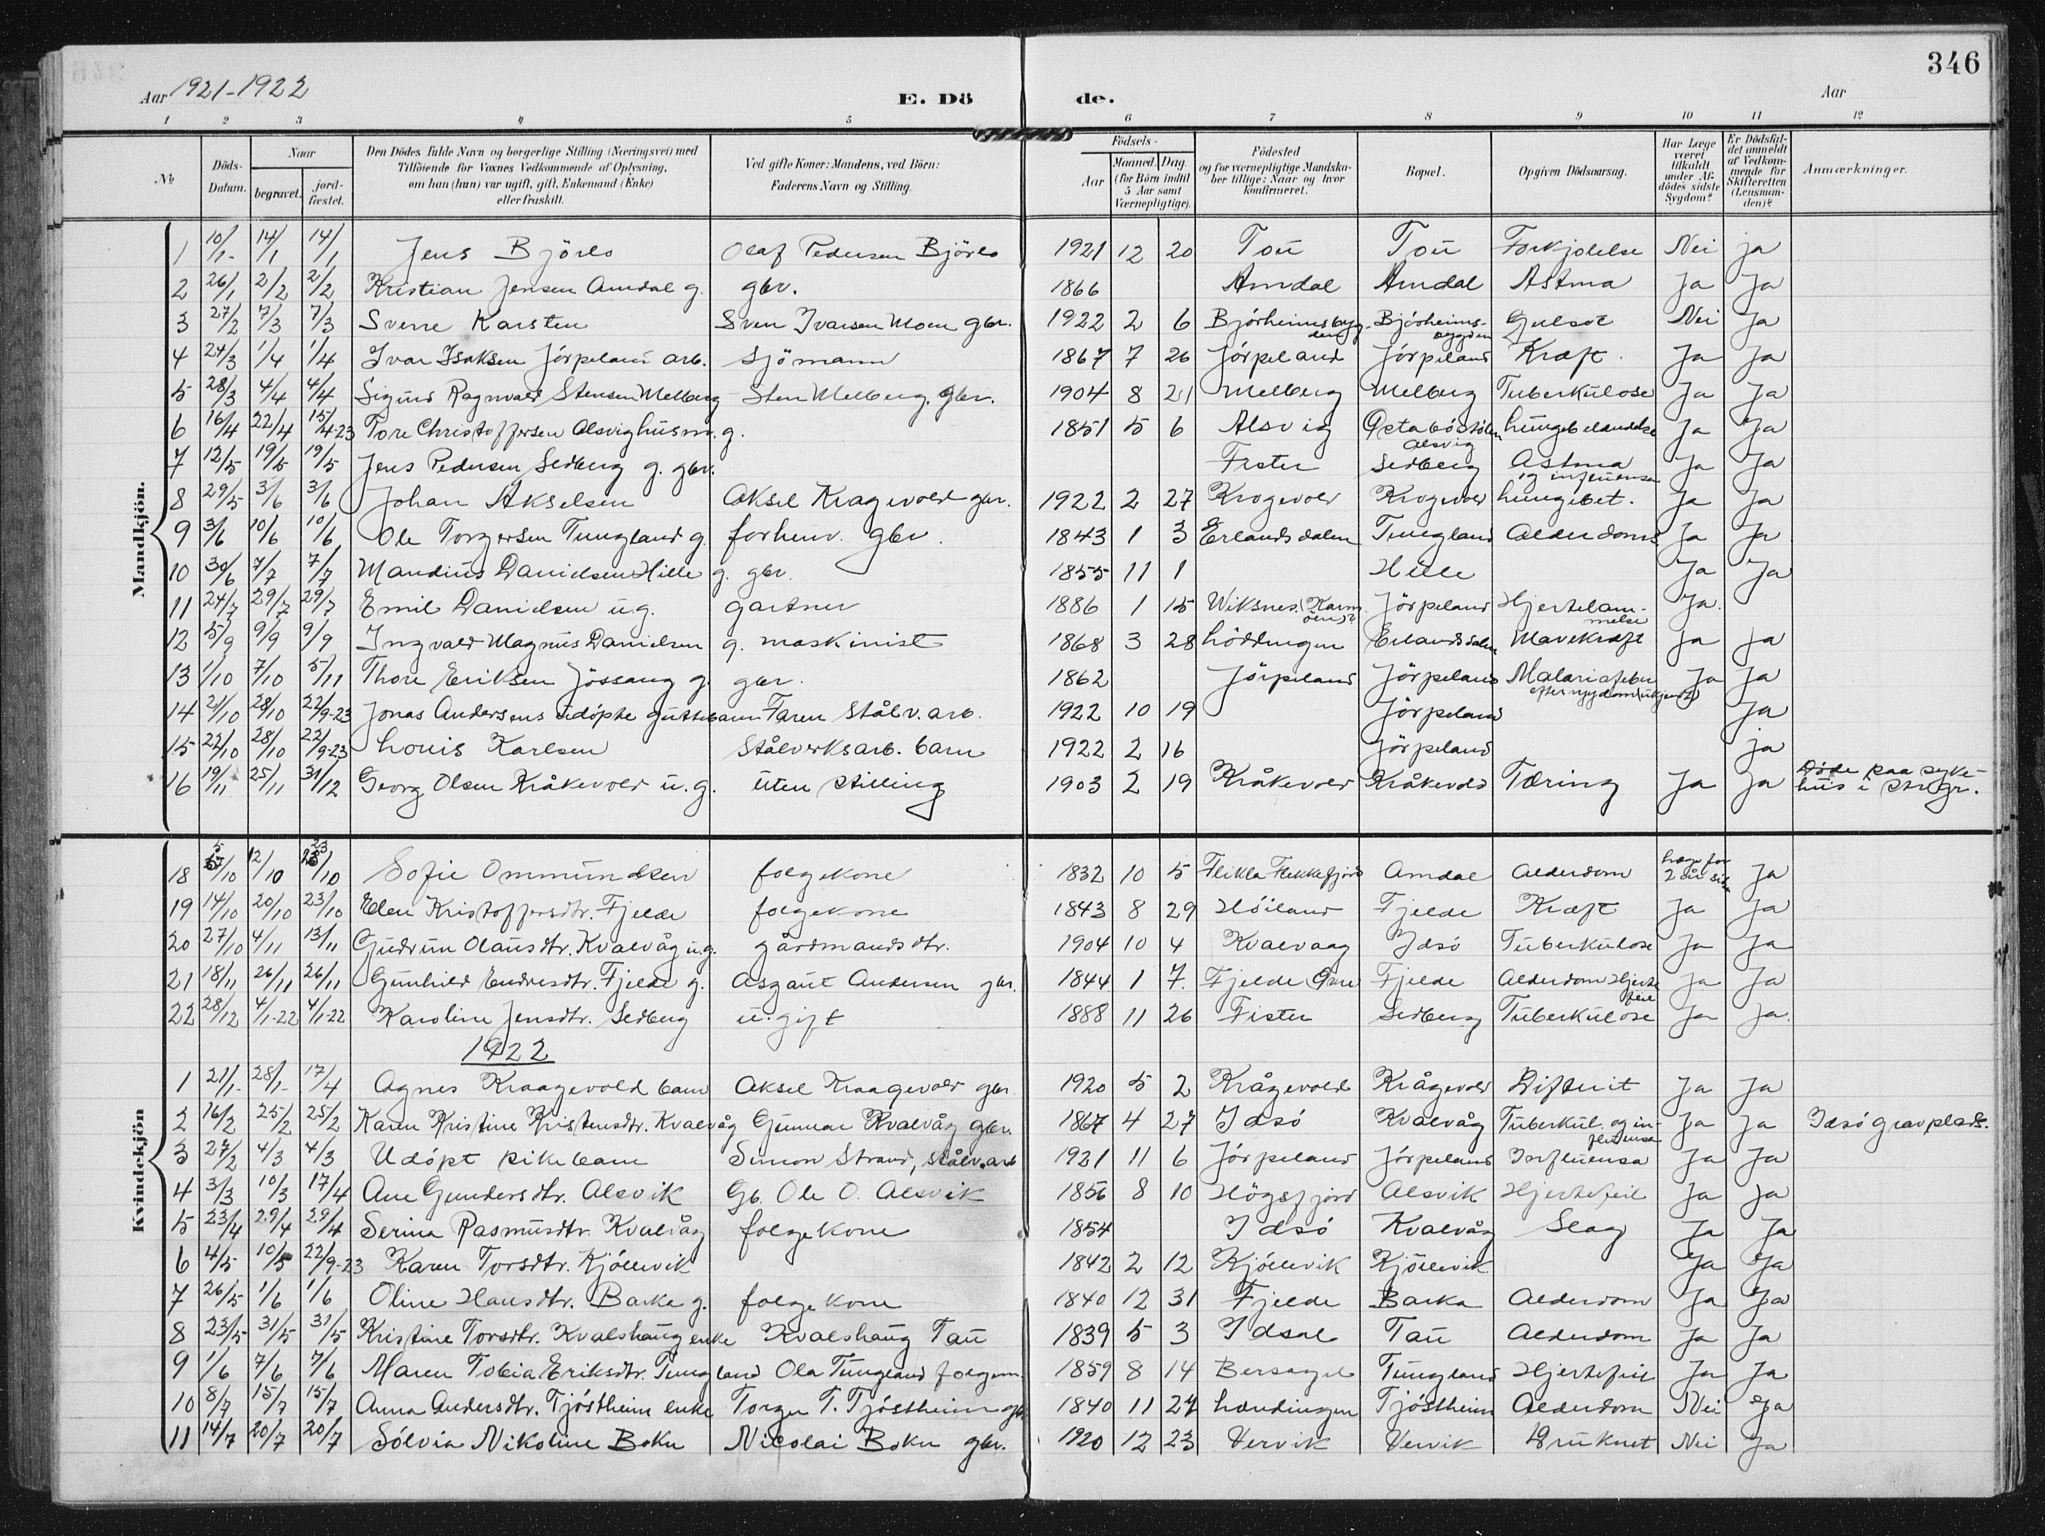 346
Aar 1921-1922 E. Dö de. Aar
1 2 3 4 5 6 7 8 9 10 11 12
№ Döds-Datum. Naar begravet. jord-fæstet. Den Dödes fulde Navn og borgerlige Stilling (Næringsvei) med Tilföiende for Voxnes Vedkommende af Oplysning, om han (hun) var ugift, gift, Enkemand (Enke) eller fraskilt. Ved gifte Koner: Mandens, ved Börn: Faderens Navn og Stilling. Födsels- Aar Maaned. Dag. (for Börn indtil 5 Aar samt Værnepligtige). Födested og for værnepligtige Mandska-ber tillige: Naar og hvor konfirmeret. Bopæl. Opgiven Dödsaarsag. Har Læge været tilkaldt under Af-dödes sidste Sygdom? Er Dödsfal-det anmeldt af Vedkom-mende for Skifteretten (Lensman-den)? Anmærkninger.
Mandkjön.
1 10/1 14/1 14/1 Jens Björlo Olaf Pedersen Björlo 1921 12 20 Tou Tou Forkjölelse Nei ja
2 26/1 2/2 2/2 Kristian Jensen Amdal g. gbr. 1866 Amdal Amdal Astma Ja Ja
3 27/2 7/3 7/3 Sverre Karsten Sven Ivarsen Moen gbr. 1922 2 6 Björheimsbyg-den Björheims-bygden Gulsot Nei Ja
4 24/3 1/4 1/4 Ivar Isaksen Jörpeland arb. Sjömann 1867 7 26 Jörpeland Jörpeland Kræft. Ja Ja
5 28/3 4/4 4/4 Sigurd Ragnvald Stensen Melberg Sten Melberg, gbr. 1904 8 21 Melberg Melberg Tuberkulose Ja Ja
6 16/4 22/4 15/4-23 Tore Christoffersen Alsvig husm. g. 1851 5 6 Alsvig Alsvig lungebetændelse Ja Ja
7 12/5 19/5 19/5 Jens Pedersen Sedberg g. gbr. Fister Sedberg Astma og influensa Ja Ja
8 29/5 3/6 3/6 Johan Akselsen Aksel Kragevold gbr. 1922 2 27 Krogevold Krogevold lungebet. Ja Ja
9 3/6 10/6 10/6 Ole Torgersen Tungland g. forhenv. gbr. 1843 1 3 Erlandsdalen Tungland Alderdoms Ja Ja
10 30/6 7/7 7/7 Mandius Danielsen Hille g. gbr. 1855 11 1 Hille Ja Ja
11 24/7 29/7 29/7 Emil Danielsen u.g. gartner 1886 1 15 Wiksnes. (Karm-öen)? Jörpeland Hjertelam-melse Ja.
12 5/9 9/9 9/9 Ingvald Magnus Danielsen g. maskinist 1868 3 28 Lödlingen Erlandsdalen Mavekræft Ja Ja
13 1/10 7/10 5/11 Thore Eriksen Jössang g. gbr. 1862 Jörpeland Jörpeland Malariafeber Ja Ja
14 21/10 28/10 22/9-23 Jonas Andersens udöpte guttebarn Faren Stålv. arb. 1922 10 19 Jörpeland Ja
15 22/10 28/10 22/9-23 Louis Karlsen Stålverksarb. barn 1922 2 16 Jörpeland ja
16 19/11 25/11 31/12 Georg Olsen Kråkevold u.g. uten stilling 1903 2 19 Kråkevold Kråkevold Tæring Ja Ja Döde paa syke-hus i Stvgr.
Kvindekjön
18 5/10 12/10 23/10 Sofie Ommundsen folgekone 1832 10 5 Flikla Flekkefjord Amdal Alderdom Læge for 2 år siden Ja
19 14/10 20/10 23/10 Elen Kristoffersdtr. Fjelde folgekone 1843 8 29 Höiland Fjelde Kræft Ja Ja
20 27/10 4/11 13/11 Gudrun Olausdtr. Kvalvåg u.g. gårdmandsdtr. 1904 10 4 Kvalvaag Idsö Tuberkulose Ja Ja
21 18/11 26/11 26/11 Gunhild Endresdtr. Fjelde g. Asgaut Andersen gbr. 1844 1 7. Fjelde Fjelde Alderdom Hjerte feil Ja Ja
22 28/12 4/1-22 4/1-22 Karoline Jensdtr. Sedberg u. gift 1888 11 26 Fister Sedberg Tuberkulose Ja Ja.
1922
1 21/1 28/1 17/4 Agnes Kraagevold barn Aksel Kraagevold gbr. 1920 5 2 Krågevold Krågevold Difterit Ja Ja
2 16/2 25/2 25/2 Karen Kristine Kristensdtr. Kvalvåg Gunnar Kvalvåg gbr. 1867 4 27 Idsö Kvalvåg Tuberkul. og in-fluensa Ja Ja Idsö gravplads.
3 27/2 4/3 4/3 Udöpt pikebarn Simon Strand, stålv.arb 1921 11 6 Jörpeland Jörpeland Influensa Ja Ja
4 3/3 10/3 17/4 Ane Gundersdtr. Alsvik Gb. Ole O. Alsvik 1856 8 10 Högsfjord Alsvik Hjertefeil Ja Ja
5 23/4 29/4 29/4 Serina Rasmusdtr. Kvalvåg folgekone 1854 Idsö Kvalvåg Slag Ja Ja
6 4/5 10/5 22/9-23 Karen Torsdtr. Kjölevik 1842 2 12 Kjölevik Kjölevik Ja Ja
7 26/5 1/6 1/6 Oline Hansdtr. Barka g. folgekone 1840 12 31 Fjelde Barka Alderdom Ja Ja
8 23/5 31/5 31/5 Kristine Torsdtr. Kvalshaug enke Kvalshaug Tau 1839 5 3 Idsal Tau Alderdom Ja Ja
9 1/6 7/6 7/6 Maren Tobia Eriksdtr. Tungland Ola Tungland folgem. 1859 8 14 Bersagel Tungland Hjertefeil Ja Ja
10 8/7 15/7 15/7 Anna Andersdtr. Tjöstheim enke Torger T. Tjöstheim gbr 1840 11 24 Lændingen Tjöstheim Alderdom Nei Ja
11 14/7 20/7 20/7 Sölvia Nikoline Bokn Nicolai Bokn gbr. 1920 12 23 Vervik Vervik Druknet Nei Ja